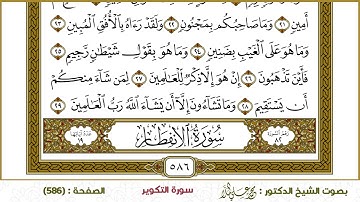 أَمِينٍ ٢١ وَمَا صَاحِبُكُم بِمَجْنُونٍ ٢٢ وَلَقَدْ رَءَاهُ بِٱلْأُفُقِ ٱلْمُبِينِ ٢٣
وَمَا هُوَ عَلَى ٱلْغَيْبِ بِضَنِينٍ ٢٤ وَمَا هُوَ بِقَوْلِ شَيْطَٰنٍ رَّجِيمٍ ٢٥
فَأَيْنَ تَذْهَبُونَ ٢٦ إِنْ هُوَ إِلَّا ذِكْرٌ لِّلْعَٰلَمِينَ ٢٧ لِمَن شَآءَ مِنكُمْ
أَن يَسْتَقِيمَ ٢٨ وَمَا تَشَآءُونَ إِلَّآ أَن يَشَآءَ ٱللَّهُ رَبُّ ٱلْعَٰلَمِينَ ٢٩
سُورَةُ الِانفِطَارِ
٥٨٦
بصوت الشيخ الدكتور : سورة التكوير الصفحة : (586)